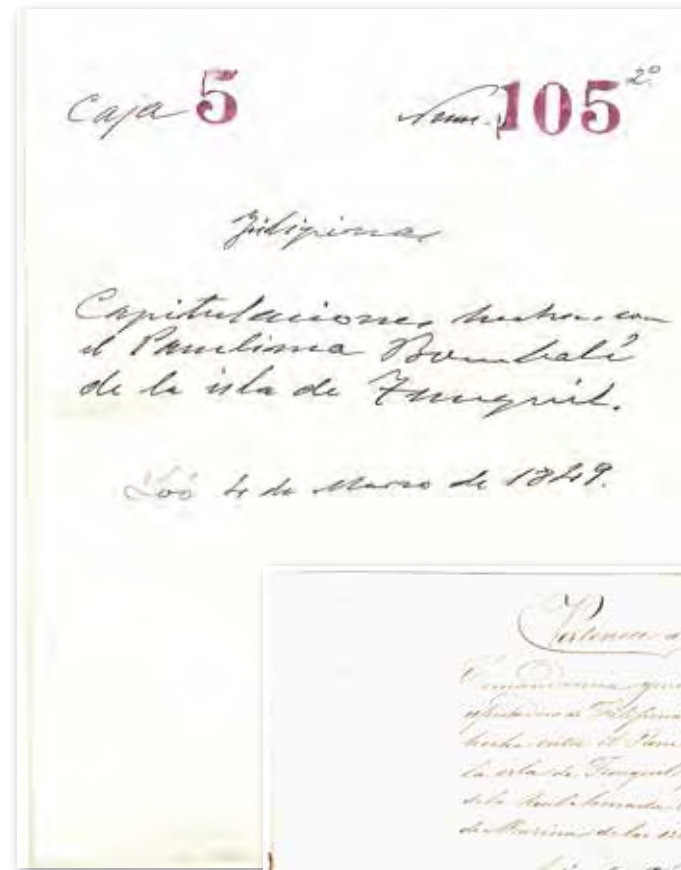 Caja 5 Num. 105 2º
Filipinas
Capitulaciones hechas con
el Panlima Bombali
de la isla de Tunquil.
Joó 4 de Marzo de 1849.
Pertenece a
Comandancia gene
apostadero de Filipinas
hecha entre el Pan
la isla de Tunquil
de la Real Armada
de Marina de las